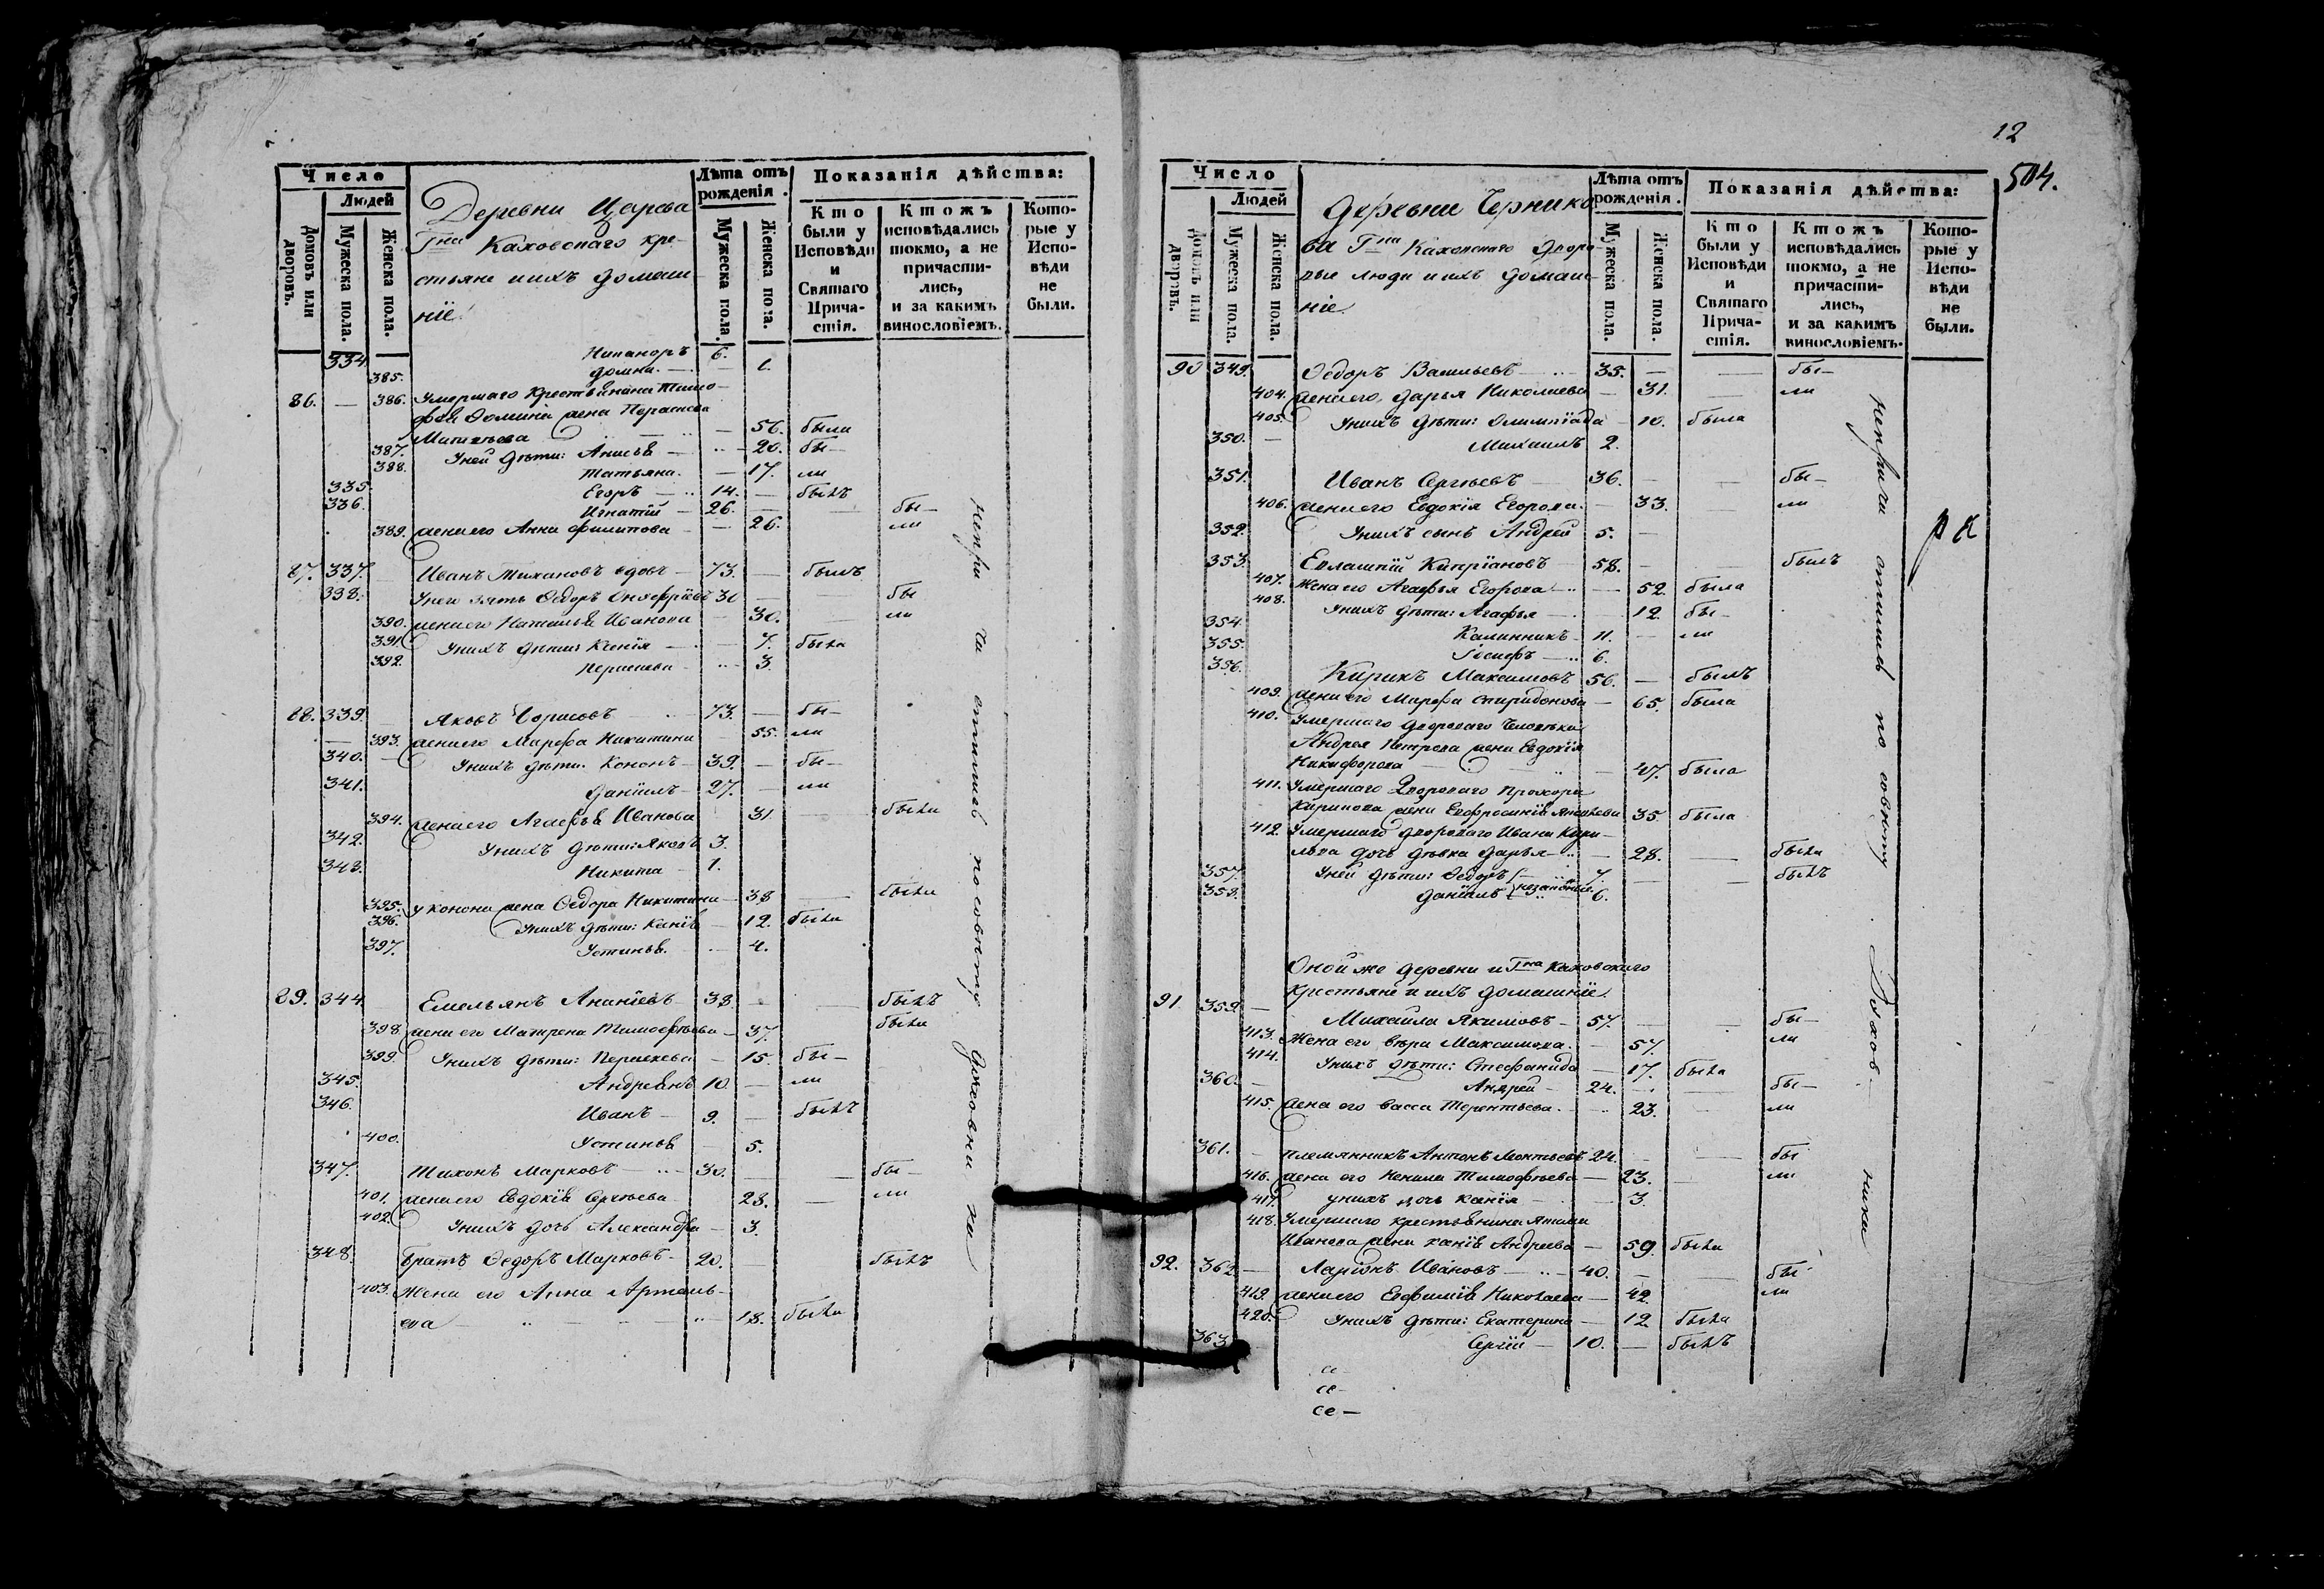 12
504.
Число
Людей
Домовъ или дворовъ.
Мужеска пола.
Женска пола.
Деревни Царева
Гна Каховскаго кре-
стьяне и ихъ домаш
ніе.
Лѣта отъ рожденія.
Мужеска пола.
Женска пола.
Показанія дѣйства:
Кто были у Исповѣди и Святаго Прича-стія.
Ктожъ исповѣдались токмо, а не причасти-лись, и за какимъ винословіемъ.
Кото-рые у Испо-вѣди не были.
334 Никаноръ 6.
385. Домна. — 1.
86. — 386. Умершаго Крестьянина Тимо-
фея Фомина жена Парасковья
Матвѣева — 56. была
387. У ней дѣти: Анисья — 20. бы-
388. Татьяна. — 17. ли
335. Егоръ — 14. — былъ
336. Игнатій — 26. — бы-
389. жена его Анна Филипова — 26. ли
87. 337. Иванъ Михановъ вдовъ — 73. — былъ
338. У него зять Ѳедоръ Онуфріевъ 30 — бы
390. жена его Наталья Иванова — 30. ли
391. У нихъ дѣти: Ксенія — 7. была
392. Параскева — 3.
88. 339. Яковъ Борисовъ 73. — бы-
393. жена его Марфа Никитина 55. ли
340. — У нихъ дѣти: Кононъ — 39. — бы-
341. Даніилъ — 27. — ли
394. жена его Агафья Иванова 31. была
342. У нихъ дѣти: Яковъ 3.
343. Никита — 1.
395. у Конона жена Ѳедора Никитина — 38 была
396. У нихъ дѣти: Ксенія — 12. была
397. Устинья. — 4.
89. 344. Емельянъ Ананіевъ — 38. — былъ
398. жена его Матрена Тимофѣева — 37. была
399. У нихъ дѣти: Параскева — 15. бы-
345. Андреянъ 10 — ли
346. Иванъ — 9. — былъ
400. Устинья — 5.
347. Тихонъ Марковъ — 30. — бы-
401. жена его Евдокія Сергѣева 28. — ли
402. У нихъ дочь Александра — 3.
348. Братъ Ѳедоръ Марковъ — 20. — былъ
403. Жена его Анна Артемь-
ева — 18. была
непри ча стились по совѣту духовни ка
Число
Людей
Домовъ или дворовъ.
Мужеска пола.
Женска пола.
Деревни Чернико
ва Гна Каховскаго дворо
вые люди и ихъ домаш
ніе.
Лѣта отъ рожденія.
Мужеска пола.
Женска пола.
Показанія дѣйства:
Кто были у Исповѣди и Святаго Прича-стія.
Ктожъ исповѣдались токмо, а не причасти-лись, и за какимъ винословіемъ.
Кото-рые у Испо-вѣди не были.
90 349. Ѳедоръ Васильевъ — 35. — бы-
404. жена его Дарья Николаева — 31. ли
405. У нихъ дѣти: Олимпіада — 10. была
350. — Михаилъ 2.
351. Иванъ Сергѣевъ — 36. — бы-
406. жена его Евдокія Егорова. — 33. ли
352. У нихъ сынъ Андрей 5. —
353. Евлампій Кипріановъ — 58. — былъ
407. Жена его Агафья Егорова — 52. была
408. У нихъ дѣти: Агафья — 12. бы-
354. Калинникъ — 11. — ли
355. Іосифъ — 6.
356. Кирикъ Максимовъ 56. — былъ
409. жена его Марфа Спиридонова — 65. была
410. Умершаго двороваго человѣка
Андрея Петрова жена Евдокія
Никифорова — 47. была
411. Умершаго двороваго Прохора
Кирикова жена Евфросинія Яковлева 35. была
412. Умершаго двороваго Ивана Кири-
лова дочь дѣвка Дарья — 28. — была
357. У ней дѣти: Ѳедоръ — 7. — былъ
358. Даніилъ незаконные — 6.
Оной же деревни и Гна Каховскаго
крестьяне и ихъ домашніе.
91. 359. — Михайла Якимовъ — 57. — бы-
413. Жена его Вѣра Максимова. — 57. ли
414. У нихъ дѣти: Стефанида — 17. была
360. — Андрей — 24. — бы-
415. жена его Васса Терентьева. — 23. ли
361. — племянникъ Антонъ Леонтьевъ 24. — бы
416. жена его Ненила Тимофѣева — 23. ли
417. у нихъ дочь Ксенія — 3.
418. Умершаго крестьянина
Иванова жена Ксенія Андреева — 59. была
92. 362. — Ларіонъ Ивановъ — 40. — бы
419. жена его Евфимія Николаева — 42. ли
420. У нихъ дѣти: Екатерина — 12. была
363. Сергій — 10. — былъ
неприча стились по совѣту духов- ника